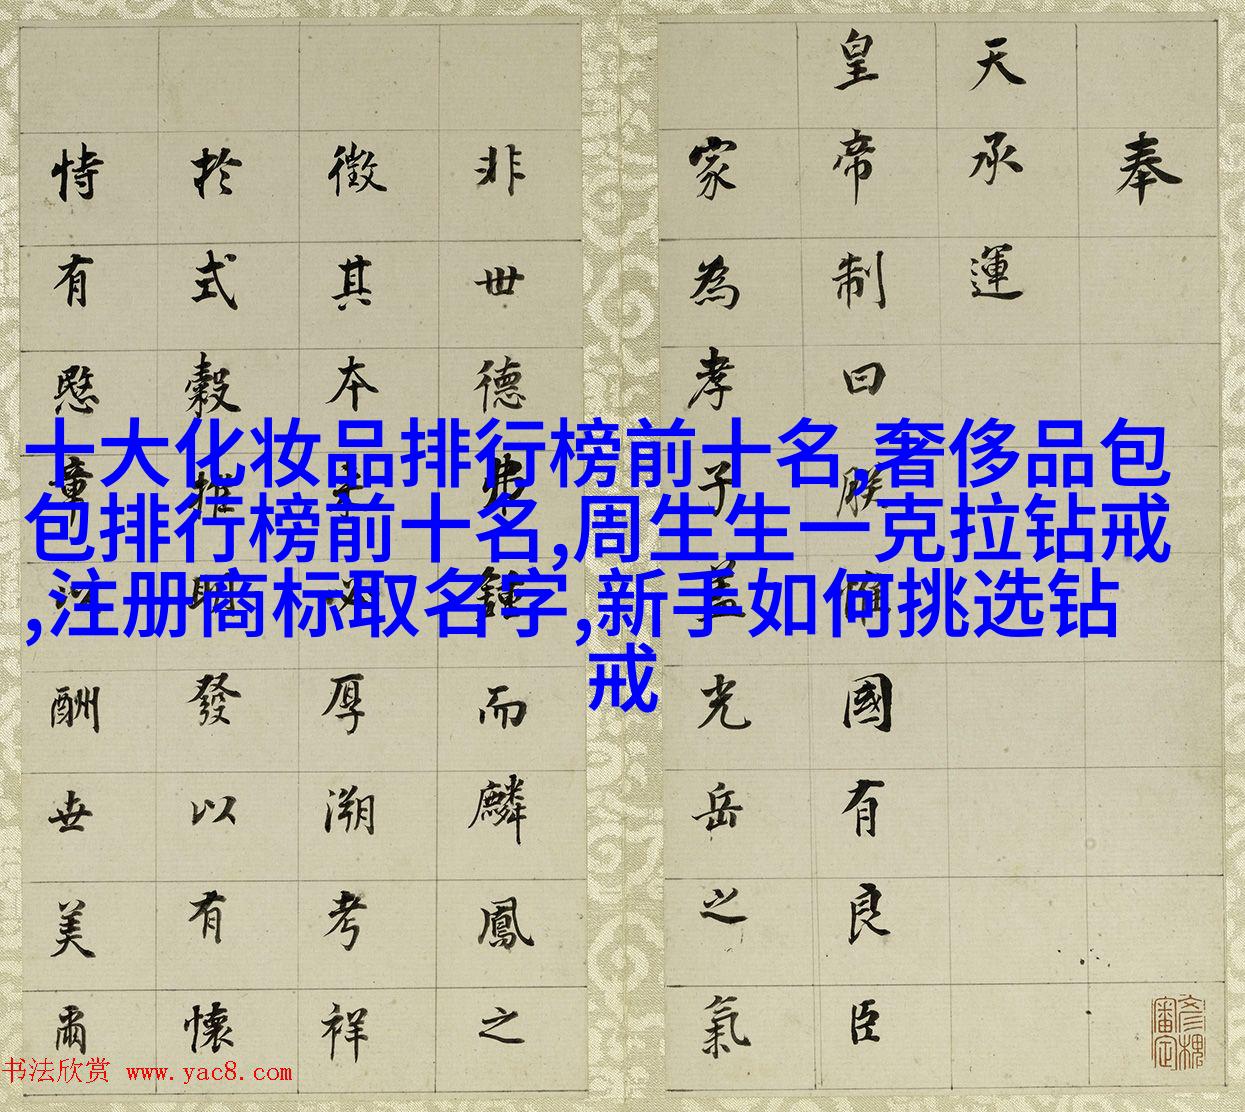 十大化妆品排行榜前十名,奢侈品包
包排行榜前十名,周生生一克拉钻戒
,注册商标取名字,新手如何挑选钻
戒
奉
天承運
皇帝制曰朕惟國有良臣
家為孝子蓋光岳之氣
非世德弗鍾而麟鳳之
徵其本必厚溯考祥
於式穀推發以有懷
特有愍章酬世美爾
书法欣赏 www.yac8.com